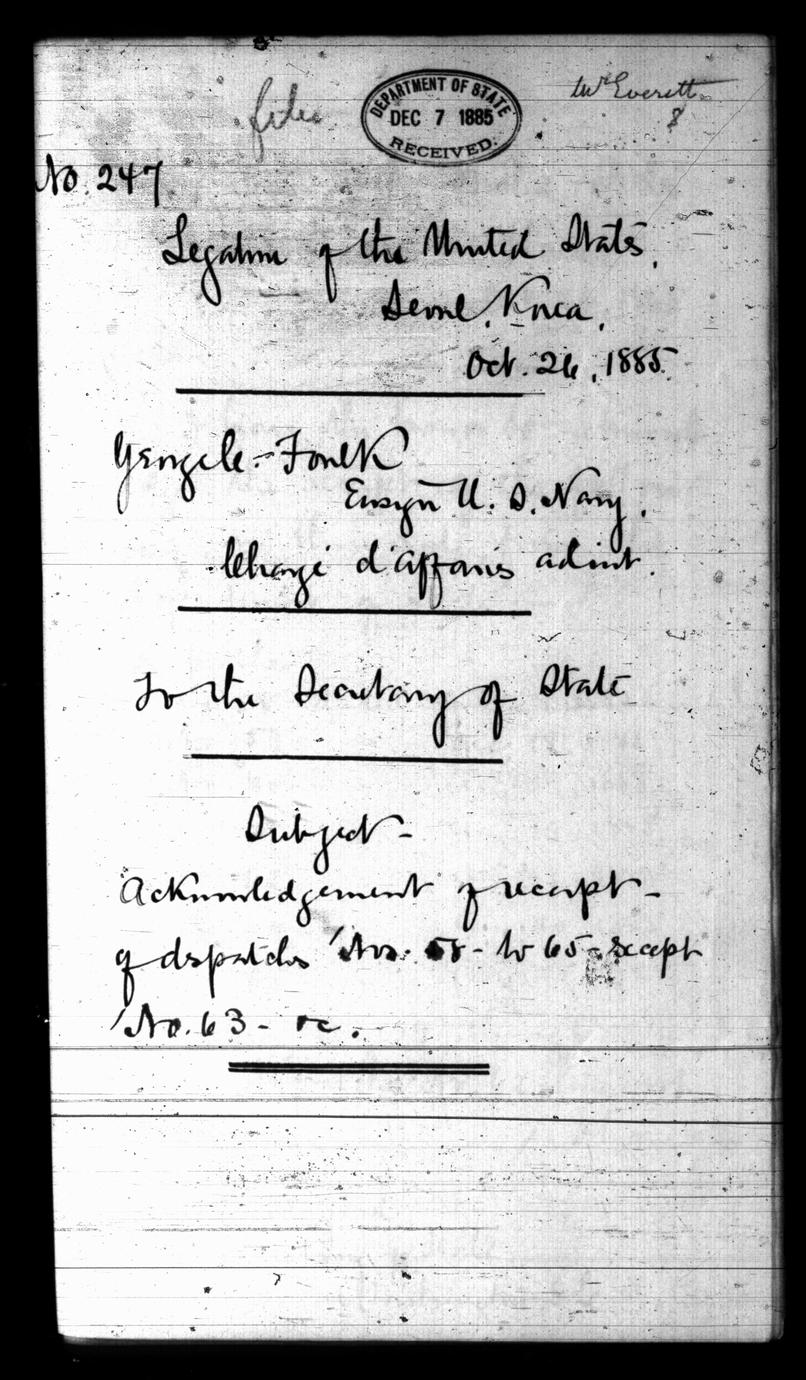 file
DEPARTMENT OF STATE
DEC 7 1885
RECEIVED.
Mr Everett
No. 247
Legation of the United States,
Seoul, Korea,
Oct. 26, 1885.
George C. Foulk
Ensign U. S. Navy.
Chargé d'affaires ad int.
To the Secretary of State
Subject -
Acknowledgement of receipt -
of dispatches Nos. 58 - to 65 - except
No. 63 -